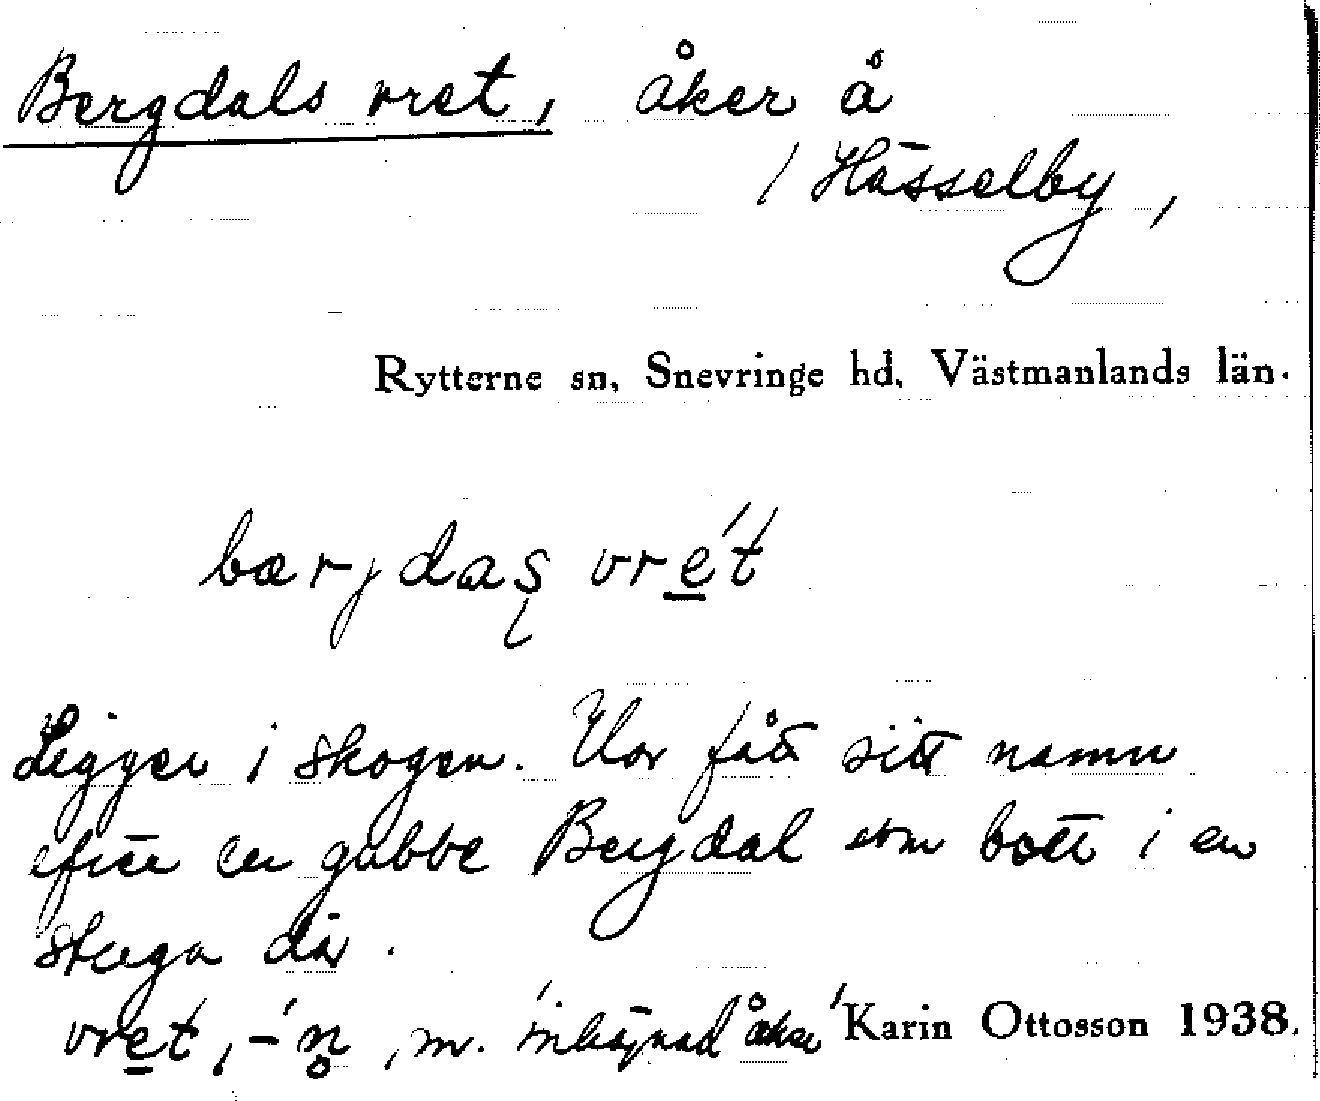 Bergdals vret, åker å
/ Hässelby,
Rytterne sn, Snevringe hd, Västmanlands län.
bærjdaʂ vre̲´t
Ligger i skogen. Har fått sitt namn
efter en gubbe Bergdal som bott i en
stuga där.
vre̲t, -´n̥, m. 'inhägnad åker' Karin Ottosson 1938.